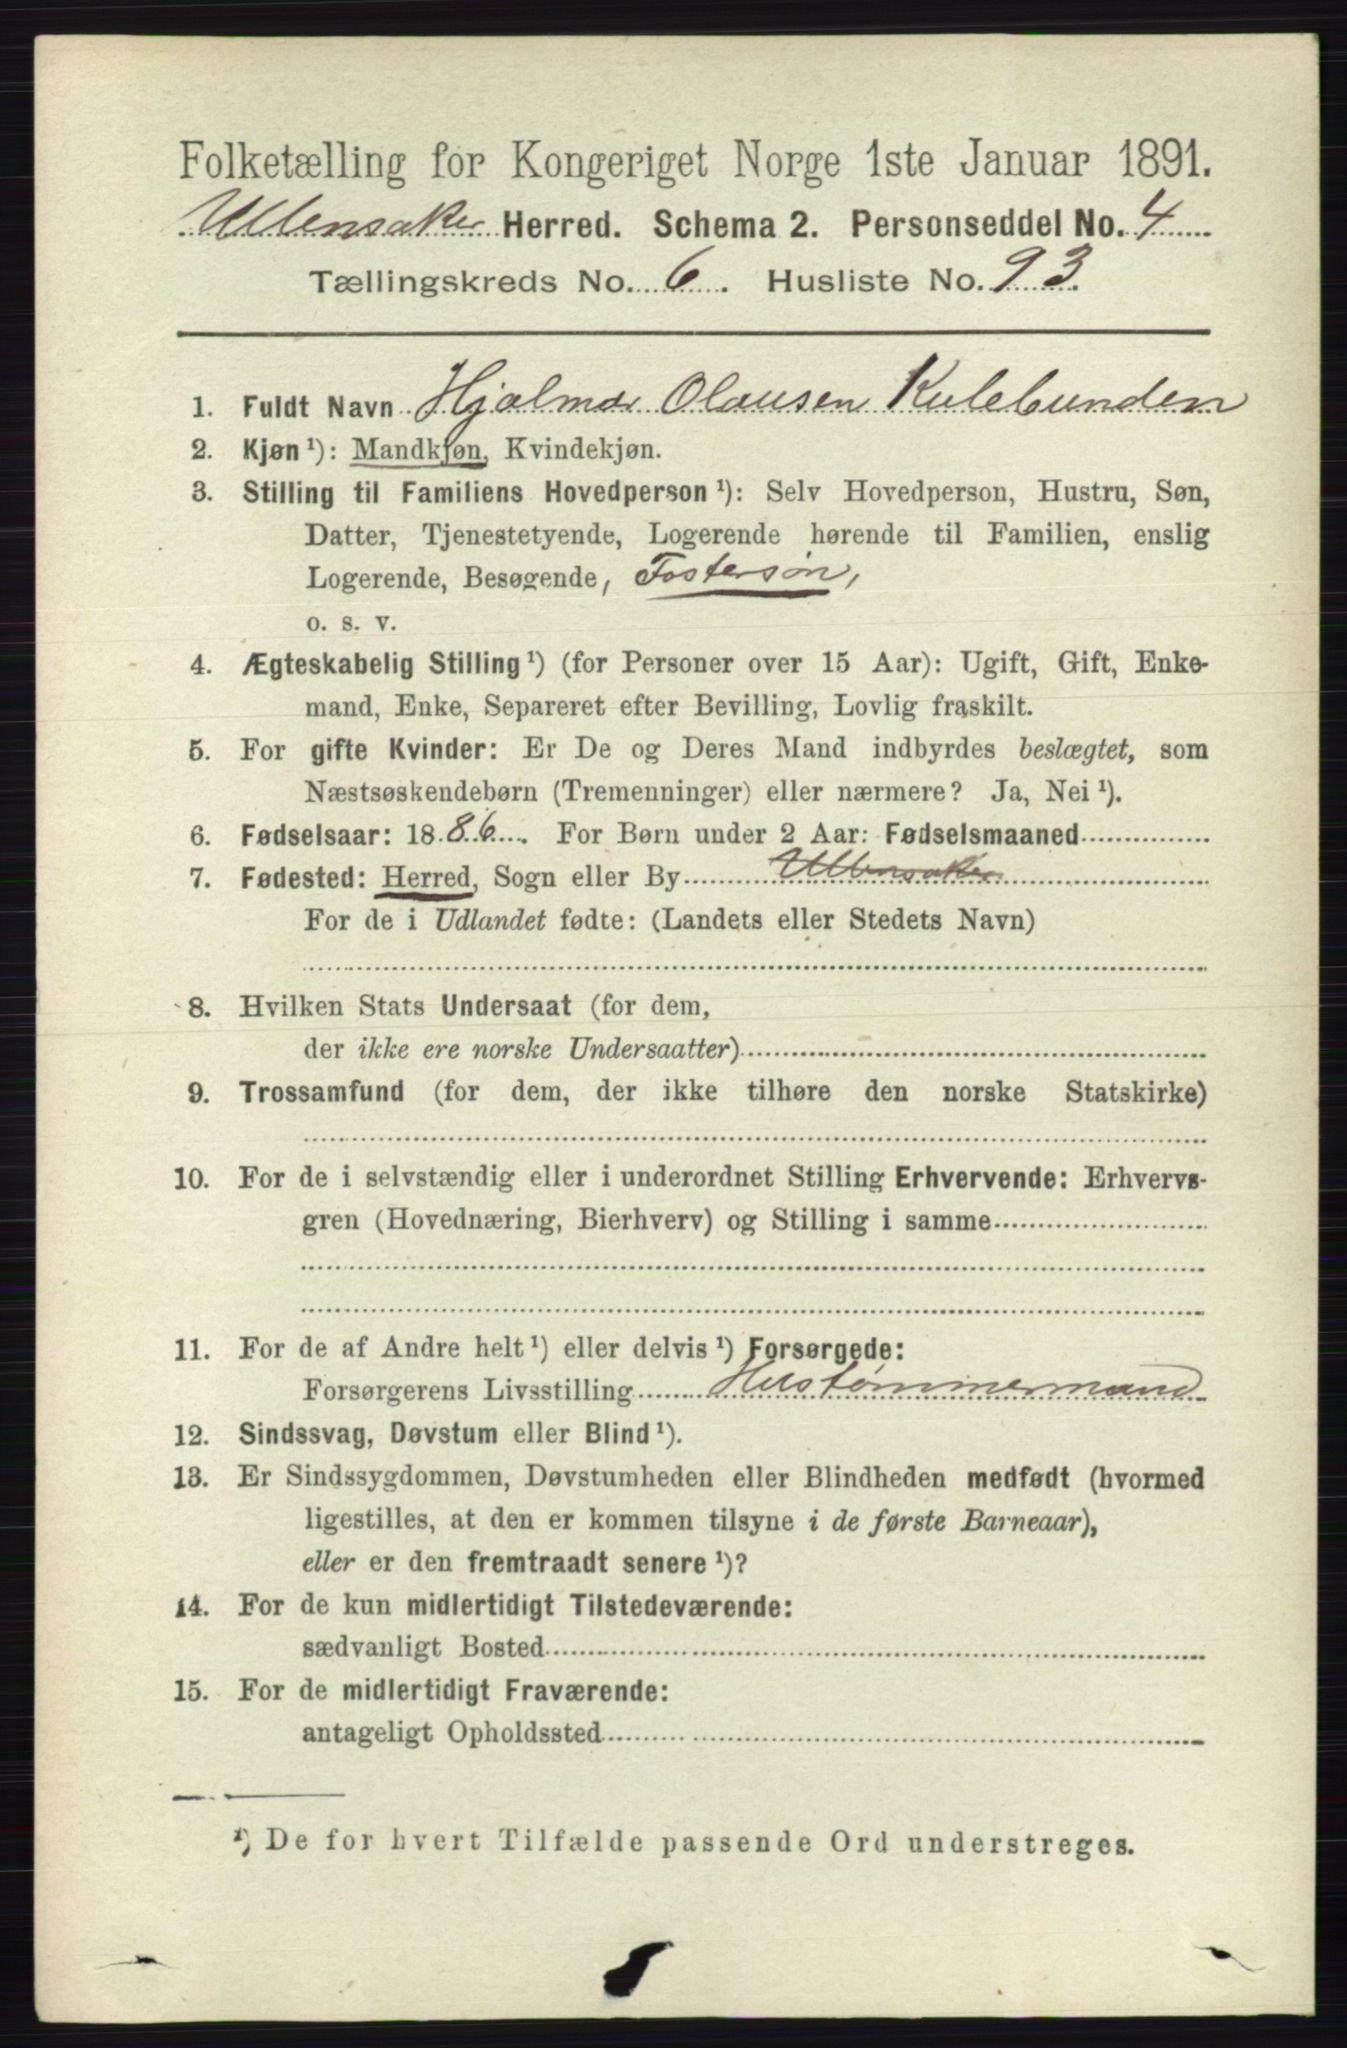 Folketælling for Kongeriget Norge 1ste Januar 1891.
Ullensaker Herred. Schema 2. Personseddel No. 4
Tællingskreds No. 6. Husliste No. 93.
1. Fuldt Navn Hjalmar Olausen Kulebunden
2. Kjøn¹): Mandkjøn, Kvindekjøn.
3. Stilling til Familiens Hovedperson¹): Selv Hovedperson, Hustru, Søn,
Datter, Tjenestetyende, Logerende hørende til Familien, enslig
Logerende, Besøgende, Fostersøn,
o. s. v.
4. Ægteskabelig Stilling¹) (for Personer over 15 Aar): Ugift, Gift, Enke-
mand, Enke, Separeret efter Bevilling, Lovlig fraskilt.
5. For gifte Kvinder: Er De og Deres Mand indbyrdes beslægtet, som
Næstsøskendebørn (Tremenninger) eller nærmere? Ja, Nei¹).
6. Fødselsaar: 1886. For Børn under 2 Aar: Fødselsmaaned
7. Fødested: Herred, Sogn eller By Ullensaker
For de i Udlandet fødte: (Landets eller Stedets Navn)
8. Hvilken Stats Undersaat (for dem,
der ikke ere norske Undersaatter)
9. Trossamfund (for dem, der ikke tilhøre den norske Statskirke)
10. For de i selvstændig eller i underordnet Stilling Erhvervende: Erhvervs-
gren (Hovednæring, Bierhverv) og Stilling i samme
11. For de af Andre helt¹) eller delvis¹) Forsørgede:
Forsørgerens Livsstilling Hustømmermand
12. Sindssvag, Døvstum eller Blind¹).
13. Er Sindssygdommen, Døvstumheden eller Blindheden medfødt (hvormed
ligestilles, at den er kommen tilsyne i de første Barneaar),
eller er den fremtraadt senere¹)?
14. For de kun midlertidigt Tilstedeværende:
sædvanligt Bosted
15. For de midlertidigt Fraværende:
antageligt Opholdssted
¹) De for hvert Tilfælde passende Ord understreges.